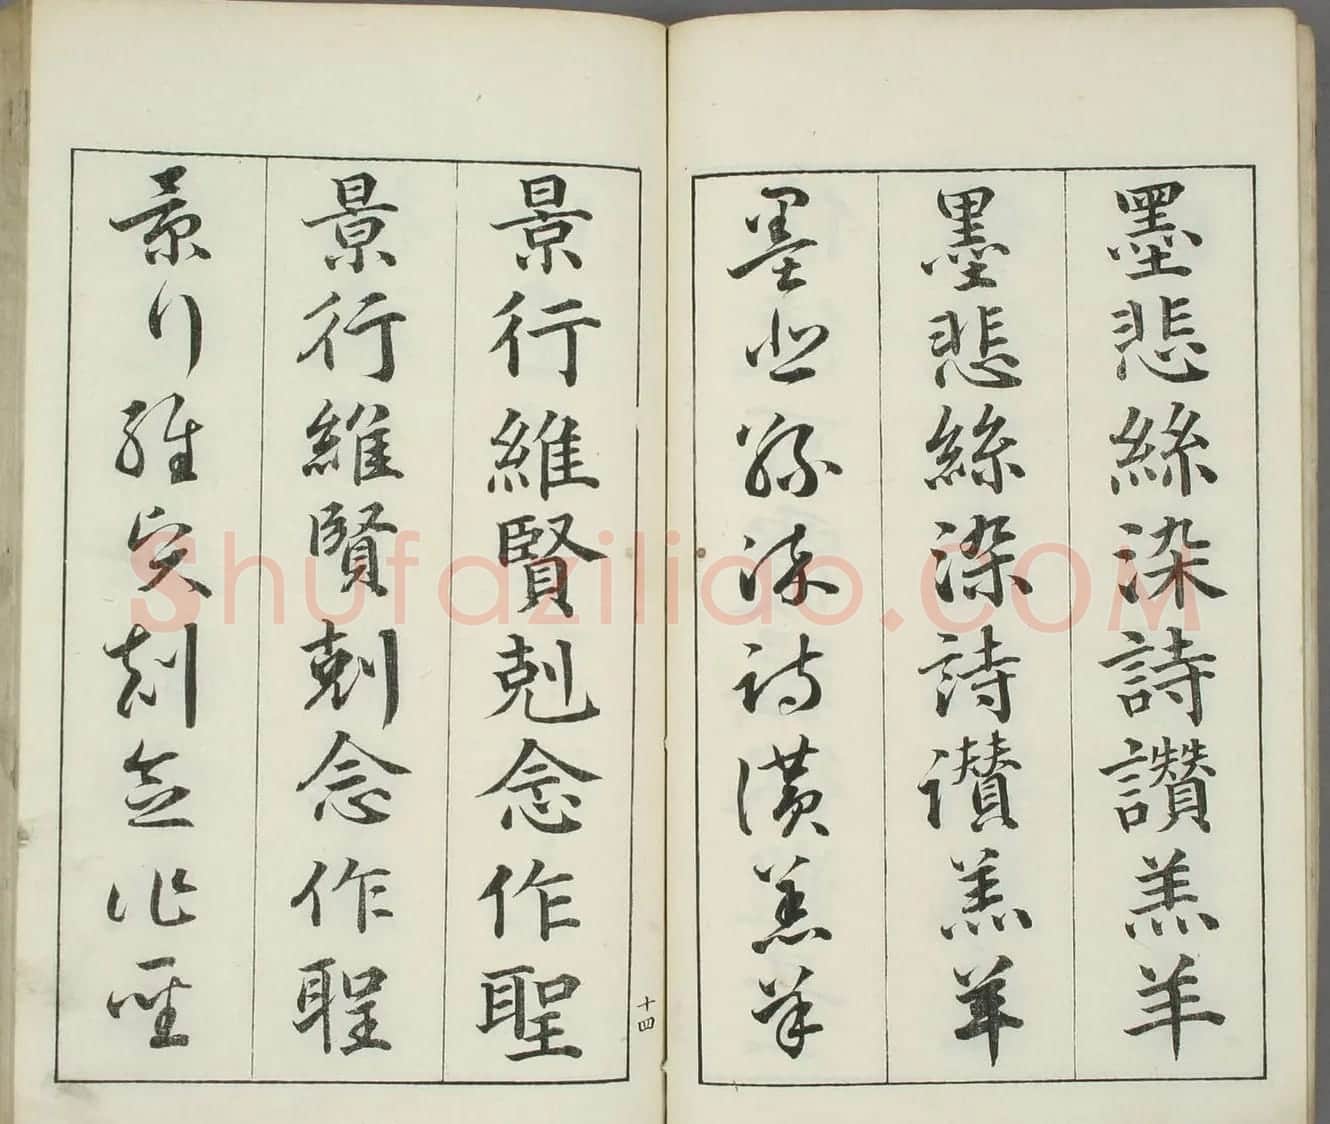 墨悲絲染詩讚羔羊
墨悲絲染詩讃羔羊
墨悲絲染詩讃羔羊
景行維賢剋念作聖
景行維賢剋念作聖
景行維賢剋念作聖
十四
Shufaziliao.COM